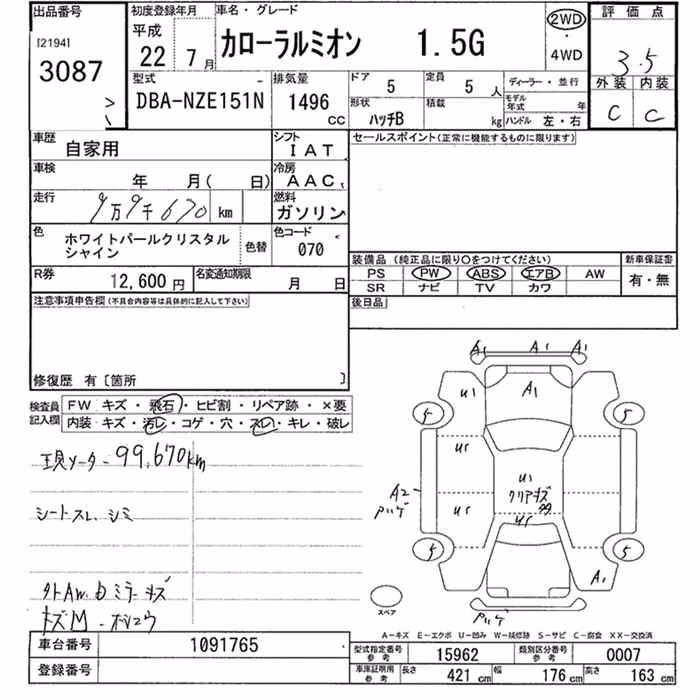 出品番号 初度登録年月 車名・グレード 2WD 評価点
[2194] 平成 ・ 3.5
3087 22 年 7 月 カローラルミオン 1.5G 4WD
型式 排気量 ドア 定員 ディーラー・並行 外装 内装
DBA-NZE151N 1496 CC 5 5 人 モデル年式 年 C C
形状 積載
ハッチB kg ハンドル 左・右
車歴 シフト セールスポイント(正常に機能するものに限ります)
自家用 IAT
車検 冷房
年 月( 日) AAC
走行 燃料
9万9千670 km ガソリン
色 色コード
ホワイトパールクリスタル 色替 070
シャイン 装備品 (純正品に限り○をつけてください) 新車保証書
R券 名変通知期限 PS PW ABS エアB AW 有・無
12,600 円 月 日 SR ナビ TV カワ
注意事項申告欄(不具合内容等は具体的に記入して下さい) 後日品
修復歴 有 [箇所 ]
検査員 FW キズ・飛石・ヒビ割・リペア跡・×要
記入欄 内装 キズ・汚レ・コゲ・穴・スレ・キレ・破レ
現メーター 99,670km
シートスレ、シミ
キズM
A1 A1 A1
U1 A1
5 5
U5
U1
A2 クリアキズ
U5 U5
5 5
A1
スペア
A-キズ E-エクボ U-凹み W-補修跡 S-サビ C-腐食 XX-交換済
車台番号 1091765 型式指定番号 参考 15962 類別区分番号 参考 0007
登録番号 車庫証明用 参考 長さ 421 cm 幅 176 cm 高さ 163 cm